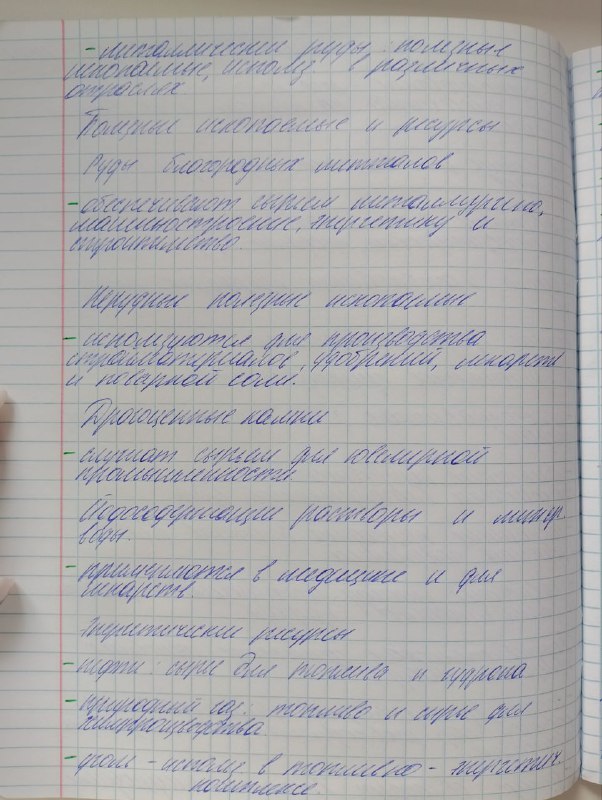 - металлические руды: полезные
ископаемые, использ. в различных
отраслях.
Полезные ископаемые и ресурсы
Руды благородных металлов
- обеспечивают сырьем металлургию,
машиностроение, энергетику и
строительство.
Нерудные полезные ископаемые
- используются для производства
стройматериалов, удобрений, лекарств
и поваренной соли.
Драгоценные камни
- служат сырьем для ювелирной
промышленности.
Йодосодержащие растворы и минер.
воды.
- применяются в медицине и для
лекарств.
Энергетические ресурсы
- нефть: сырье для топлива и гудрона
- природный газ: топливо и сырье для
химпроизводства.
- уголь - использ в топливно - энергетич.
комплексе.